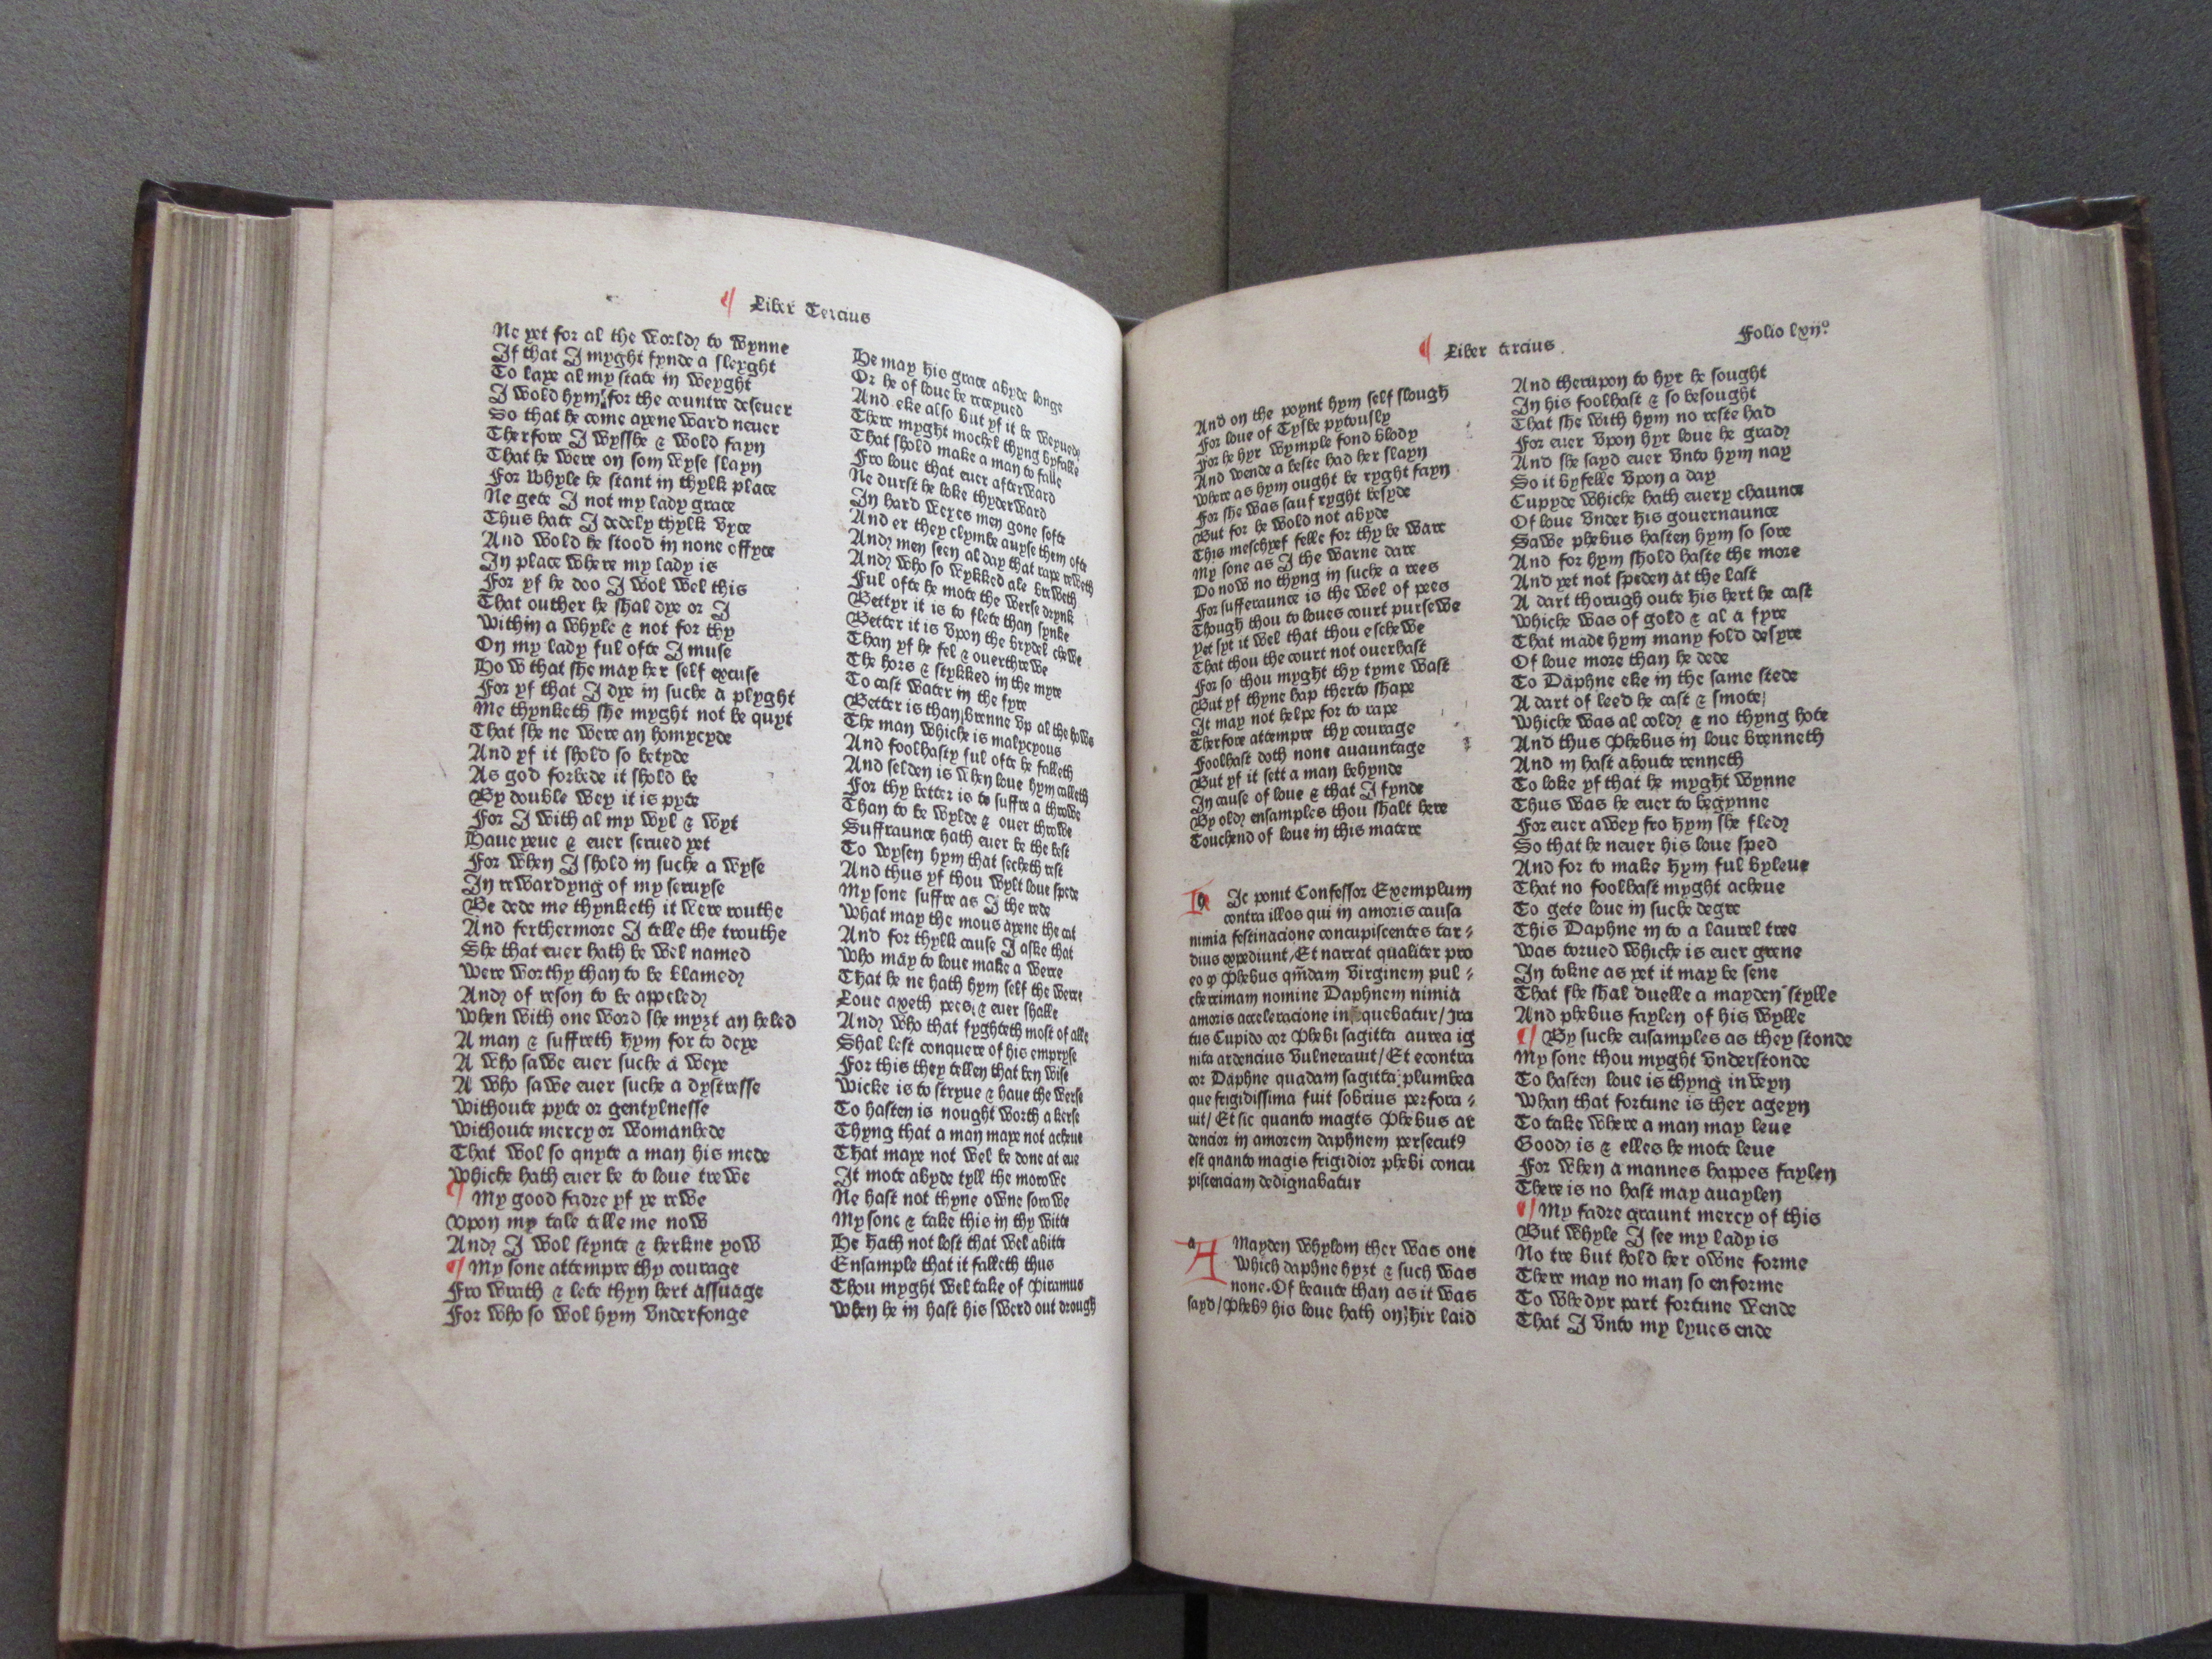 Liber Tercius
Ne yet for al the world to wynne
If that I myght fynde a sleyght
To laye al my state in weyght
I wold hym for the countre deseuer
So that he come ayene ward neuer
Therfore I wysshe & wold fayn
That he were on som wyse slayn
For whyle he stant in thylk place
Ne gete I not my lady grace
Thus hate I dedely thylk vyce
And wold he stood in none offyce
In place where my lady is
For yf he doo I wol wel this
That outher he shal dye or I
within a whyle & not for thy
On my lady ful ofte I muse
How that she may her self excuse
For yf that I dye in suche a plyght
Me thynketh she myght not be quyt
That she ne were an homycyde
And yf it shold so betyde
As god forbede it shold be
By double wey it is pyte
For I with al my wyl & wyt
Haue yeue & euer serued yet
For when I shold in suche a wyse
In rewardyng of my seruyse
Be dede me thynketh it were routhe
And ferthermore I telle the trouthe
She that euer hath be wel named
were worthy than to be blamed
And of reson to be appeled
when with one word she myȝt an heled
A man & suffreth hym for to deye
A who sawe euer suche a weye
A who sawe euer suche a dystresse
withoute pyte or gentylnesse
withoute mercy or womanhede
That wol so quyte a man his mede
whiche hath euer be to loue trewe
¶ My good fadre yf ye rewe
vpon my tale telle me now
And I wol stynte & herkne yow
¶ My sone attempre thy courage
Fro wrath & lete thyn hert assuage
For who so wol hym vnderfonge
He may his grace abyde longe
Or he of loue be receyued
And eke also but yf it be weyued
There myght mockel thyng byfalle
That shold make a man to falle
Fro loue that euer afterward
Ne durst he loke thyderward
In hard weyes men gone softe
And er they clymbe auyse them ofte
And men seen al day that rape reweth
And who so wykked ale breweth
Ful ofte he mote the werse drynk
Bettyr it is to flete than synke
Better it is vpon the brydel chewe
Than yf he fel & ouerthrewe
The hors & stykked in the myre
To cast water in the fyre
Better is than brenne vp al the hows
The man whiche is malycyous
And foolhasty ful ofte he falleth
And selden is when loue hym calleth
For thy better is to suffre a throwe
Than to be wylde & ouer throwe
Suffraunce hath euer be the best
To wysen hym that secheth rest
And thus yf thou wylt loue spede
My sone suffre as I the rede
what may the mous ayene the cat
And for thylk cause I aske that
who may to loue make a werre
That he ne hath hym self the werre
Loue axeth pees & euer shalle
And who that fyghteth most of alle
Shal lest conquere of his empryse
For this they tellen that ben wise
wicke is to stryue & haue the werse
To hasten is nought worth a kerse
Thyng that a man maye not acheue
That maye not wel be done at eue
It mote abyde tyll the morowe
Ne hast not thyne owne sorowe
My sone & take this in thy witte
He hath not lost that wel abitte
Ensample that it falleth thus
Thou myght wel take of Piramus
when he in hast his swerd out drough
Liber tercius
Folio lxij⁰
And on the poynt hym self slough
For loue of Tysbe pytously
For he hyr wymple fond blody
And wende a beste had her slayn
where as hym ought be ryght fayn
For she was sauf ryght besyde
But for he wold not abyde
This meschyef felle for thy be ware
My sone as I the warne dare
Do now no thyng in suche a rees
For sufferaunce is the wel of pees
Though thou to loues court pursewe
yet syt it wel that thou eschewe
That thou the court not ouerhast
For so thou myght thy tyme wast
But yf thyne hap therto shape
It may not helpe for to rape
Therfore attempre thy courage
Foolhast doth none auauntage
But yf it sett a man behynde
In cause of loue & that I fynde
By old ensamples thou shalt here
Touchend of loue in this matere
Hic ponit Confessor Exemplum
contra illos qui in amoris causa
nimia festinacione concupiscentes tar⸗
dius expediunt, Et narrat qualiter pro
eo ꝙ Phebus qm̄dam virginem pul⸗
cherrimam nomine Daphnem nimia
amoris acceleracione insequebatur/ Jra
tus Cupido cor Phebi sagitta aurea ig
nita ardencius vulnerauit/ Et econtra
cor Daphne quadam sagitta plumbea
que frigidissima fuit sobrius perfora⸗
uit/ Et sic quanto magis Phebus ar
dencior in amorem daphnem persecutꝰ
est quanto magis frigidior phebi concu
piscenciam dedignabatur
A Mayden whylom ther was one
Which daphne hyȝt & such was
none. Of beaute than as it was
sayd/ Phebꝰ his loue hath on hir laid
And therupon to hyr he sought
In his foolhast & so besought
That she with hym no reste had
For euer vpon hyr loue he grad
And she sayd euer vnto hym nay
So it byfelle vpon a day
Cupyde whiche hath euery chaunce
Of loue vnder his gouernaunce
Sawe phebus hasten hym so sore
And for hym shold haste the more
And yet not speden at the last
A dart thorugh oute his hert he cast
whiche was of gold & al a fyre
That made hym many fold desyre
Of loue more than he dede
To Daphne eke in the same stede
A dart of leed he cast & smote
whiche was al cold & no thyng hote
And thus Phebus in loue brenneth
And in hast aboute renneth
To loke yf that he myght wynne
Thus was he euer to begynne
For euer awey fro hym she fled
So that he neuer his loue sped
And for to make hym ful byleue
That no foolhast myght acheue
To gete loue in suche degre
This Daphne in to a laurel tree
was torued whiche is euer grene
In tokne as yet it may be sene
That she shal duelle a mayden stylle
And phebus faylen of his wylle
¶ By suche ensamples as they stonde
My sone thou myght vnderstonde
To hasten loue is thyng in veyn
whan that fortune is ther ageyn
To take where a man may leue
Good is & elles he mote leue
For when a mannes happes faylen
There is no hast may auaylen
¶ My fadre graunt mercy of this
But whyle I see my lady is
No tre but hold her owne forme
There may no man so enforme
To whedyr part fortune wende
That I vnto my lyues ende